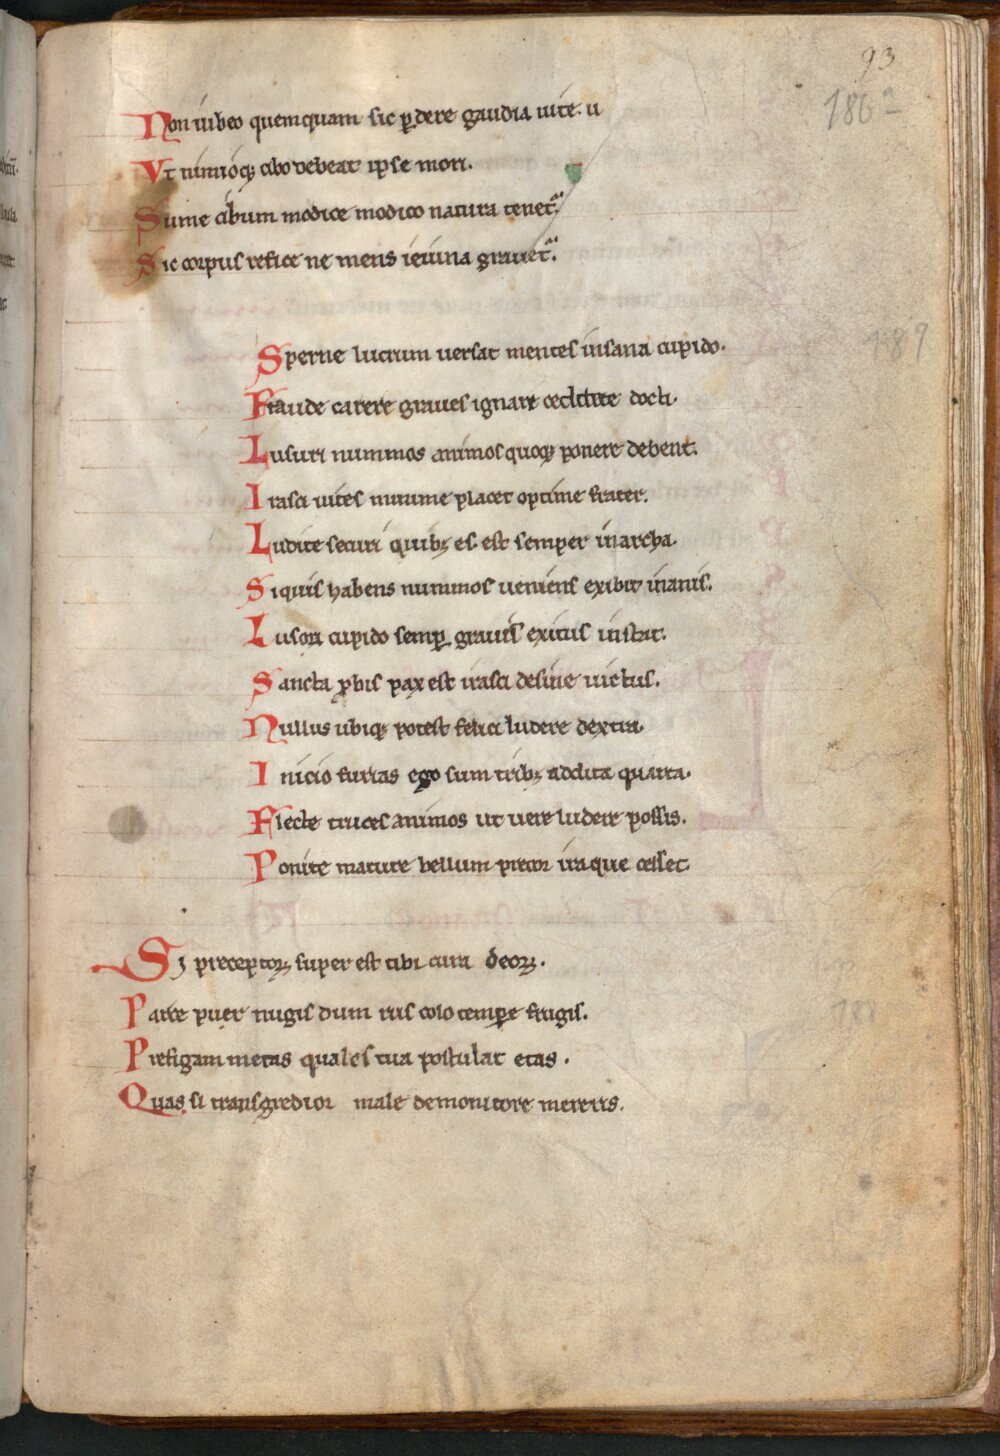 93
186a
Non iubeo quemquam sic ꝑdere gaudia uite. u
Vt nimioqꝫ cibo debeat ipse mori.
Sume cibum modice modico natura tenet᷑.
Sic corpus refice ne mens ieiuna grauet᷑.
Sperne lucrum uersat mentes insana cupido.
189
Fraude carere graues ignari cedite docti.
Lusuri nummos animos quoqꝫ ponere debent.
Irasci uites minime placet optime frater.
Ludite securi quibꝫ es est semper in archa.
Siquis habens nummos ueniens exibit inanis.
Lusoꝝ cupido semꝑ grauis exitus instat.
Sancta ꝓbis pax est irasci desine uictus.
Nullus ubiqꝫ potest felici ludere dextra.
Inicio furias ego sum tribꝫ addita quarta.
Flecte truces animos ut uere ludere possis.
Ponite mature bellum precor iraque cesset.
Si preceptoꝝ super est tibi cura deoꝝ.
Parce puer nugis dum rus colo tempore frugis.
Prefigam metas quales tua postulat etas.
Quas si transgredior male de monitore mereris.